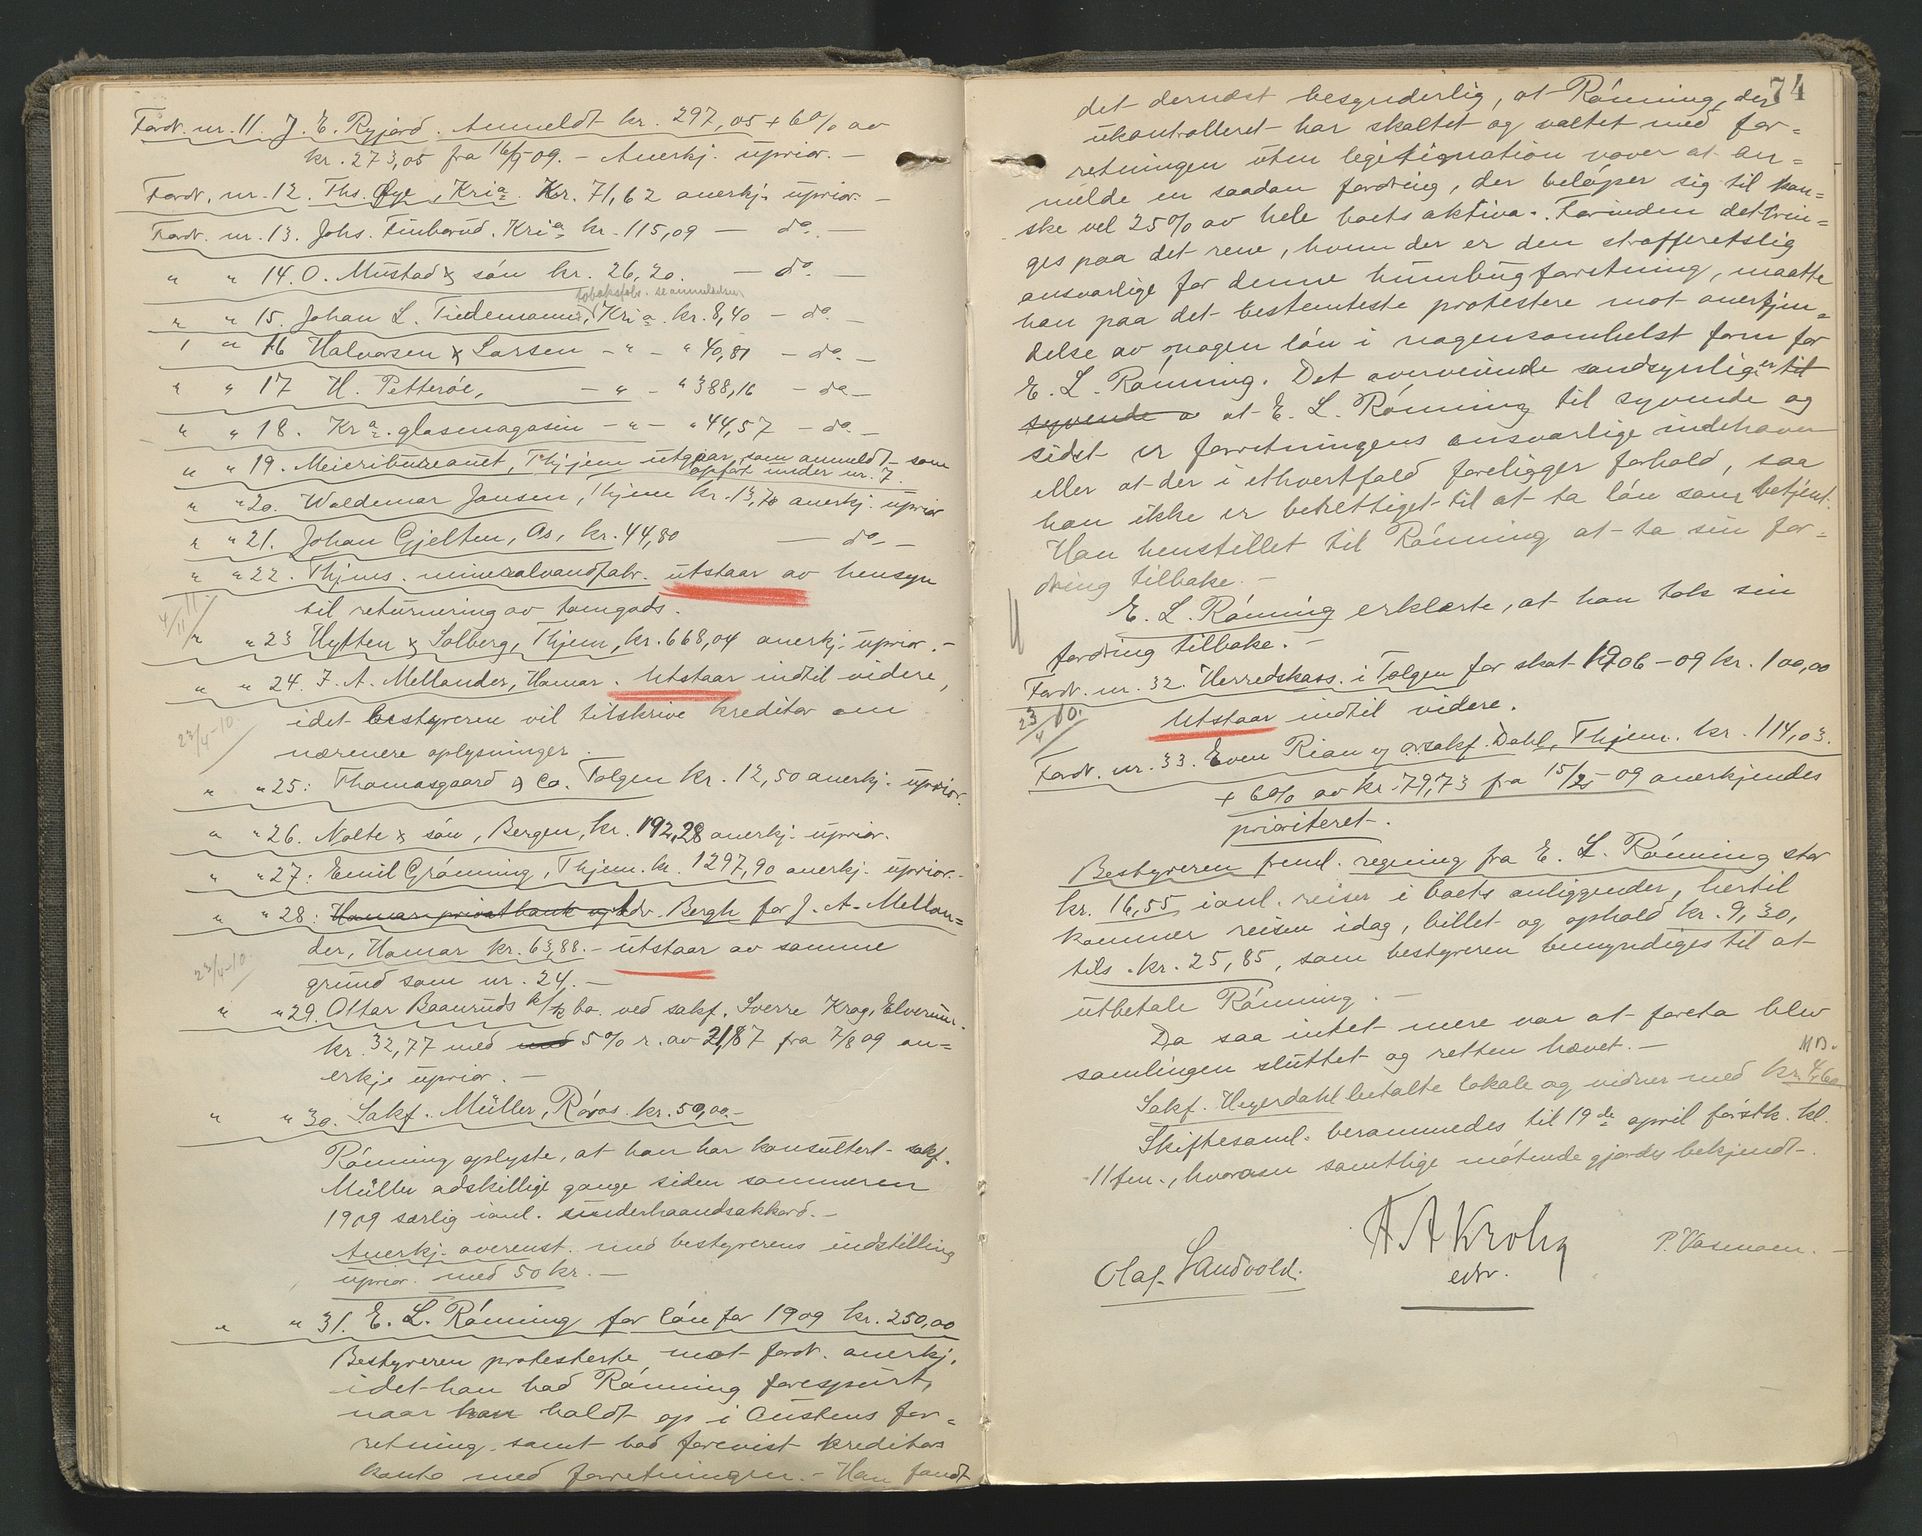 Fordr. nr. 11. J. E. Ryjord. Anmeldt kr. 297,05 + 6% av
kr. 273,05 fra 16/9 09. – Anerkj. uprior. –
Fordr. nr. 12. Ths. Øye, Kria. Kr. 71,62 anerkj. uprior. –
Fordr. nr. 13. Johs. Finborud. Kria kr. 115,09 — do. —
" " 14. O. Mustad & søn kr. 26,20. — do. —
tobaksfabr. se anmeldelsen
" " 15. Johan L. Tiedemann, Kria. kr. 8,40 – do. –
" " 16 Halvorsen & Larsen – " – " 40,81 – do. –
" " 17 H. Petterøe, – " – " 388,16 – do –
" " 18. Kra. glasmagasin – " – " 44,57 – do. –
" " 19. Meieribureauet, Thjem utgaar, som anmeldt – som
opført under nr. 7.
" " 20. Waldemar Jansen, Thjem kr. 13,70 anerkj. uprior
" " 21. Johan Gjelten, Os, kr. 44,80 — do. —
" " 22. Thjms. mineralvandfabr. utstaar av hensyn
4/11
til returnering av tomgods.
" " 23 Hytten & Solberg, Thjem, kr. 668,04 anerkj. uprior. –
" " 24. J. A. Mellander, Hamar. Utstaar indtil videre,
23/4–10.
idet bestyreren vil tilskrive kreditor om
nærmere oplysninger.
" " 25: Thomasgaard & Co. Tolgen kr. 12,50 anerkj. uprior.
" " 26. Nolte & søn, Bergen, kr. 192,28 anerkj. uprior.
" " 27: Emil Grønning, Thjem. kr. 1297,90 anerkj. uprior. –
" " 28: Hamar privatbank og Adv. Bergh for J. A. Mellan=
der, Hamar kr. 63,88. – utstaar av samme
23/4–10.
grund som nr. 24. –
" " 29. Ottar Baanruds k/bo ved sakf. Sverre Krog, Elverum.
kr. 32,77 med med 5% r. av 21,87 fra 7/8 09 an=
erkje uprior. –
" " 30. Sakf. Müller, Røros. kr. 50,00 –
Rønning oplyste, at han har konsultert sakf.
Müller adskillige gange siden sommeren
1909 særlig ianl. underhaandsakkord. –
Anerkj. overenst. med bestyrerens indstilling
uprior. med 50 kr. –
" " 31. E. L. Rønning for løn for 1909 kr. 250,00
Bestyreren protesterte mot fordr. anerkj.
idet han bad Rønning forespurt,
naar han holdt op i Austens for=
retning samt bad forevist kreditors
konto med forretningen. – Han fandt
74
det dernæst besynderlig, at Rønning, der
ukontrolleret har skaltet og valtet med for=
retningen uten legitimation vover at an=
melde en saadan fordring, der beløper sig til kan=
ske vel 25% av hele boets aktiva. Forinden det brin=
ges paa det rene, hvem der er den strafferetslig
ansvarlige for denne humbugforretning, maatte
han paa det bestemteste protestere mot anerkjen=
delse av nogen løn i nogensomhelst form for
E. L. Rønning. Det overveiende sandsynlig er til
syvende o at E. L. Rønning til syvende og
sidst er forretningens ansvarlige indehaver
eller at der i ethvertfald foreligger forhold, saa
han ikke er berettiget til at ta løn som betjent.
Han henstillet til Rønning at ta sin for=
dring tilbake. –
E. L. Rønning erklærte, at han tok sin
fordring tilbake. –
Fordr. nr. 32. Herredskass. i Tolgen for skat 1906–09 kr. 100,00
23/4 10.
Utstaar indtil videre.
Fordr. nr. 33. Even Rian og ovsakf. Dahl, Thjem. kr. 114,03.
+ 6% av kr. 79,73 fra 15/2 09 anerkjendes
prioriteret.
Bestyreren freml. regning fra E. L. Rønning stor
kr. 16,55 ianl. reiser i boets anliggender, hertil
kommer reisen idag, billet og ophold kr. 9,30,
tils. kr. 25,85, som bestyreren bemyndiges til at
utbetale Rønning. –
Da saa intet mere var at foreta blev
samlingen sluttet og retten hævet. –
MB.
Sakf. Heyerdahl betalte lokale og vidner med kr. 4,60
Skiftesaml. berammedes til 19de april førstk. kl.
11 fm., hvorom samtlige møtende gjordes bekjendt –.
Olaf Sandvold.
F A Krohn
edv.
P. Vasmoen. –